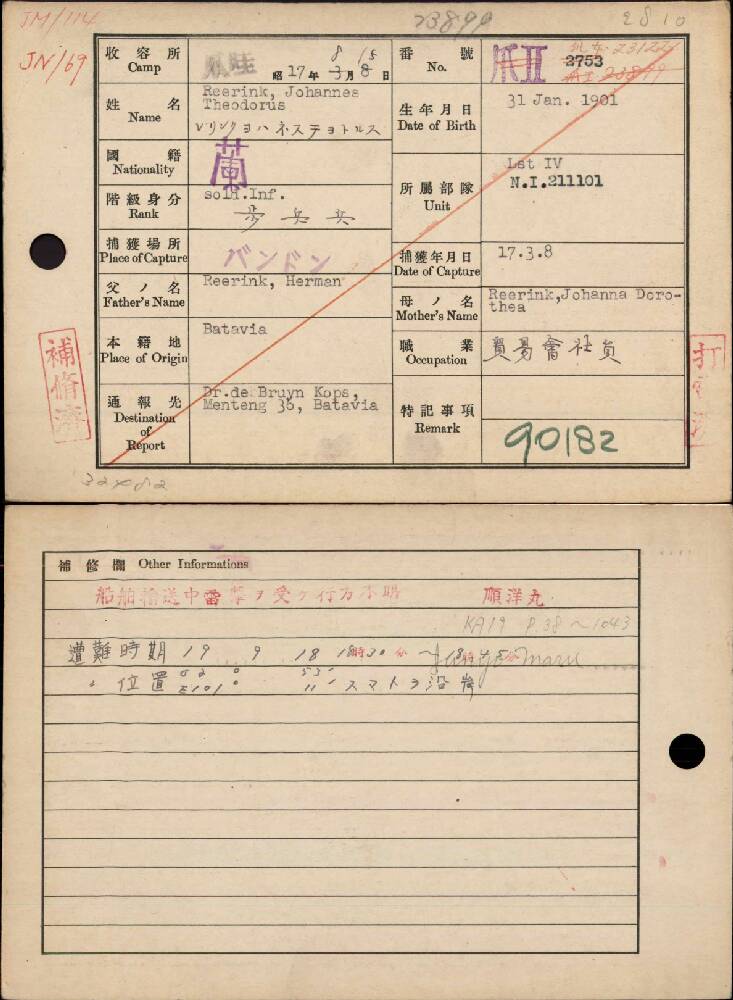 JM/114
23899
2810
JN/69
收容所 Camp
爪哇
昭17年 3月 8日
8 15
番號 No.
爪II
2753
23122
23899
姓名 Name
Reerink, Johannes
Theodorus
レリンク ヨハネス テヨトルス
生年月日 Date of Birth
31 Jan. 1901
國籍 Nationality
蘭
所屬部隊 Unit
Lst IV
N.I.211101
階級身分 Rank
sold.Inf.
歩兵
捕獲場所 Place of Capture
バンドン
捕獲年月日 Date of Capture
17.3.8
父ノ名 Father's Name
Reerink, Herman
母ノ名 Mother's Name
Reerink,Johanna Doro-
thea
本籍地 Place of Origin
Batavia
職業 Occupation
貿易會社員
通報先 Destination of Report
Dr.de Bruyn Kops,
Menteng 36, Batavia
特記事項 Remark
90182
補脩濟
打
補修欄 Other Informations
船舶輸送中雷撃ヲ受ケ行方不明 順洋丸
KA19 P.38~1043
遭難時期 19 9 18 18時30分~18時45分
Junyo Maru
〃 位置
E101° 11' スマトラ沿岸